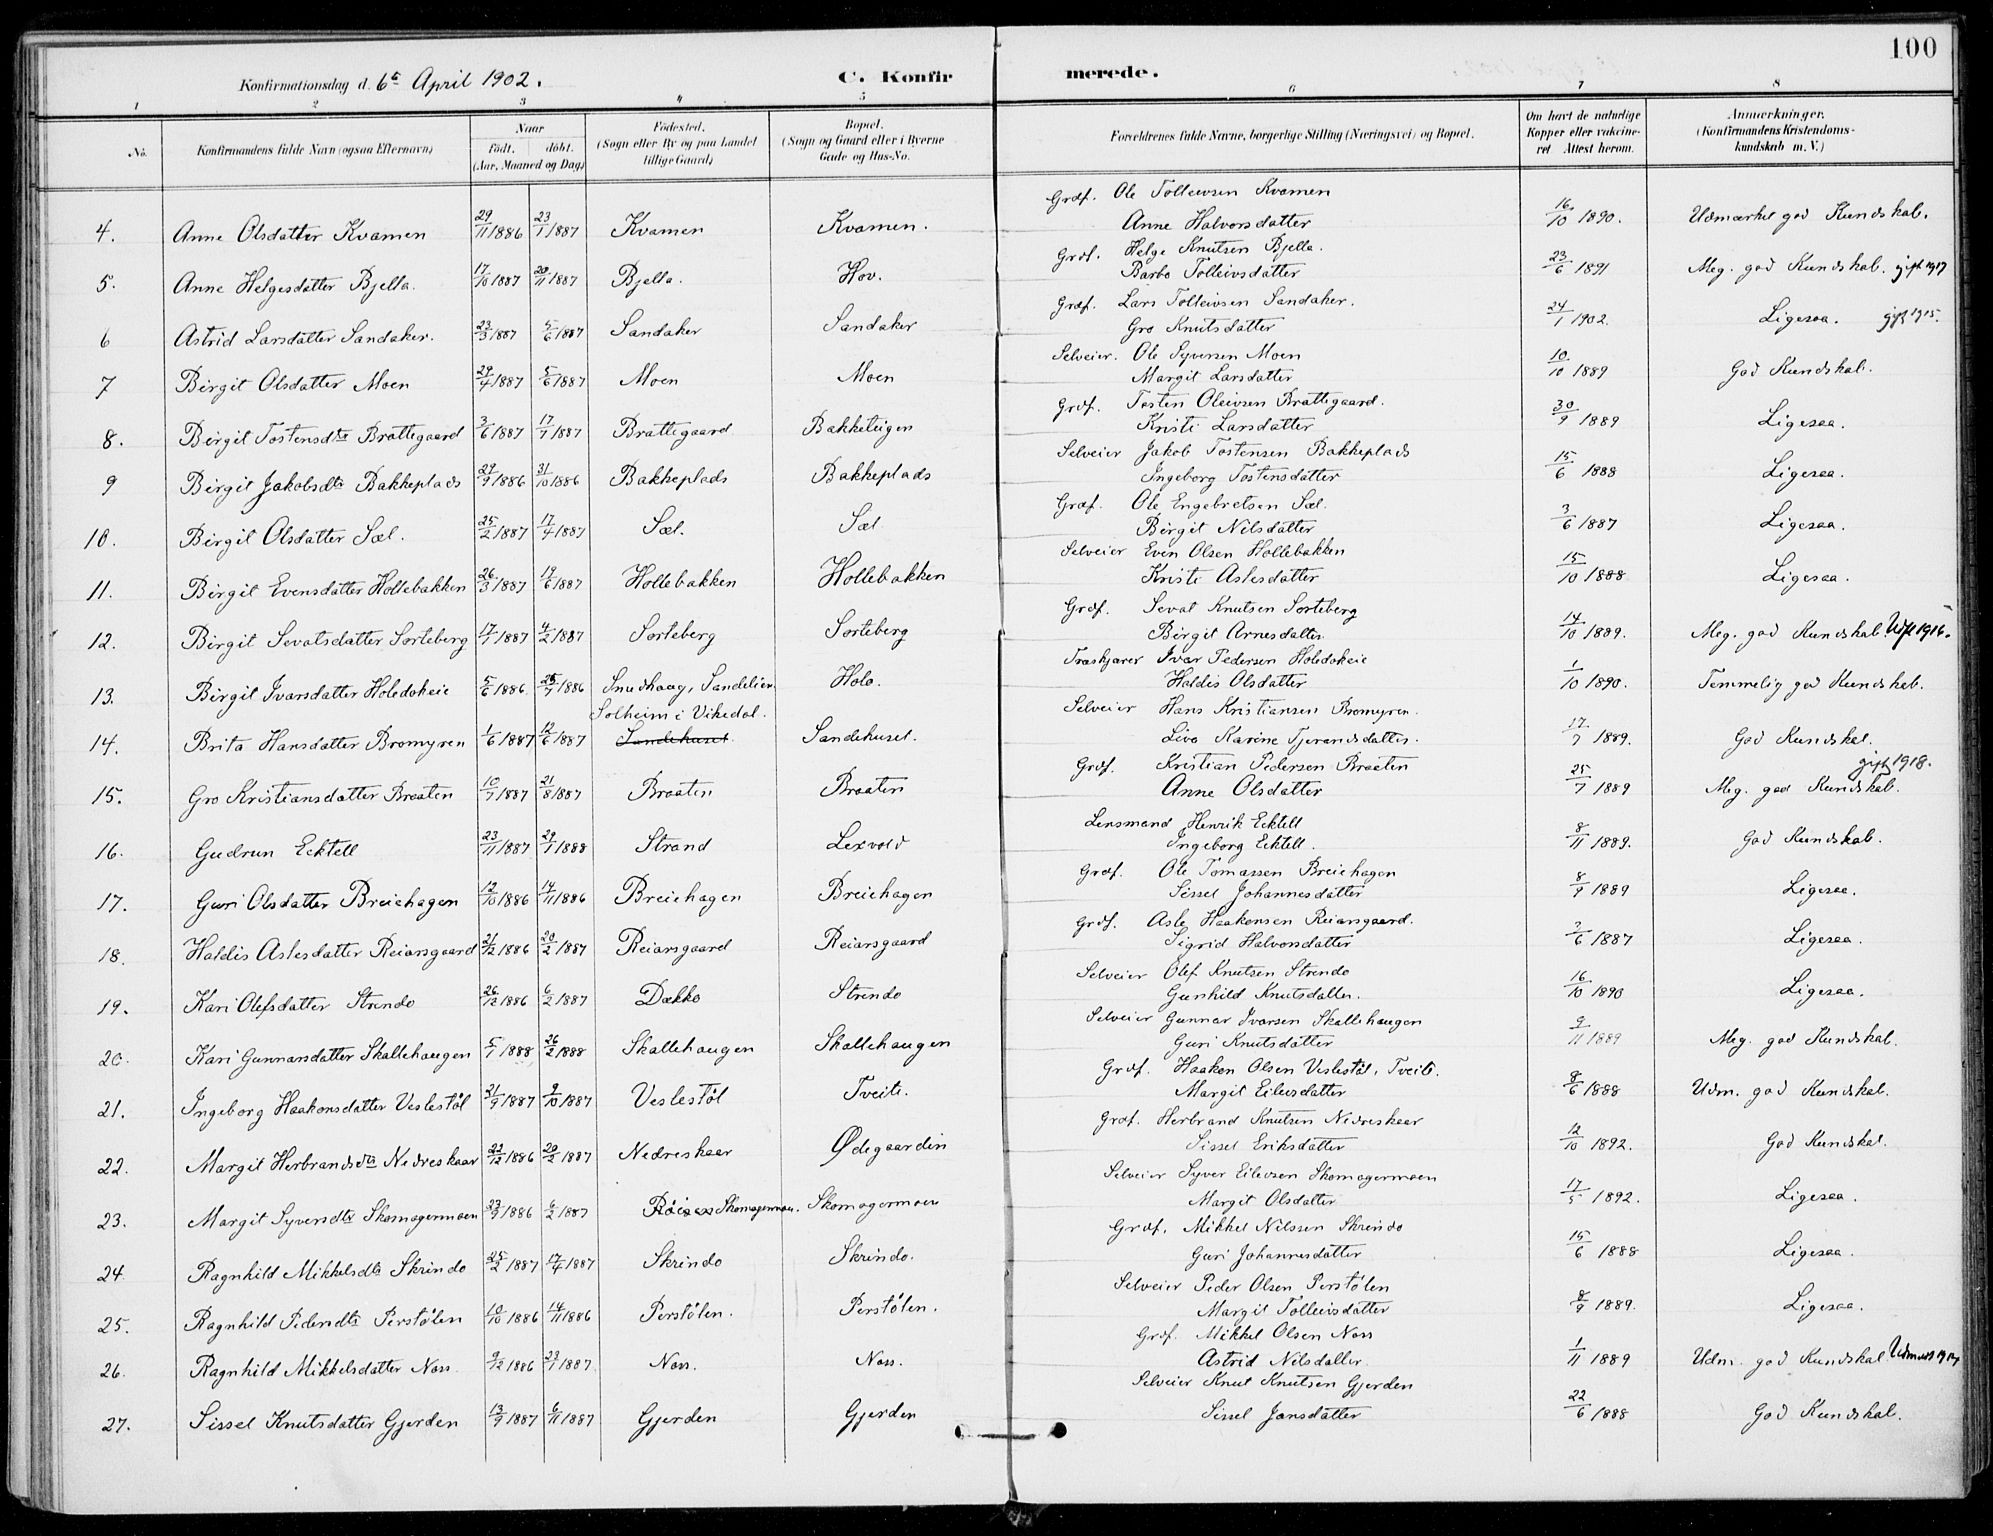 100
Konfirmationsdag d. 6te April 1902.
C. Konfirmerede.
1 2 3 4 5 6 7 8
No. Konfirmandens fulde Navn (ogsaa Efternavn) Naar født. døbt. (Aar, Maaned og Dag) Fødested. (Sogn eller By og paa Landet tillige Gaard) Bopæl. (Sogn og Gaard eller i Byerne Gade og Hus-No. Forældrenes fulde Navne, borgerlige Stilling (Næringsvei) og Bopæl. Om havt de naturlige Kopper eller vakcineret Attest herom. Anmærkninger. (Konfirmandens Kristendomskundskab m. V.)
4. Anne Olsdatter Kvamen 29/11 1886 23/1 1887 Kvamen Kvamen. Grdf. Ole Tolleivsen Kvamen
Anne Halvorsdatter 16/10 1890. Udmærket god Kundskab.
5. Anne Helgesdatter Bjella. 17/10 1887 20/11 1887 Bjella. Hov. Grdf. Helge Knutsen Bjella.
Barbo Tolleivsdatter 23/6 1891 Meg. god Kundskab. gift 1917
6 Astrid Larsdatter Sandaker. 23/3 1887 5/6 1887 Sandaker Sandaker Grdf. Lars Tolleivsen Sandaker.
Gro Knutsdatter 24/1 1902. Ligesaa. gift 1915.
7 Birgit Olsdatter Moen 29/4 1887 5/6 1887 Moen Moen Selveier. Ole Syversen Moen
Margit Larsdatter 10/10 1889 God Kundskab.
8. Birgit Tostensdtr Brattegaard 3/6 1887 17/7 1887 Brattegaard Bakketeigen Grdf. Tosten Oleivsen Brattegaard.
Kristi Larsdatter 30/9 1889 Ligesaa.
9 Birgit Jakobsdtr Bakkeplads 29/9 1886 31/10 1886 Bakkeplads Bakkeplads Selveier Jakob Tostensen Bakkeplads
Ingeborg Tostensdatter 15/6 1888 Ligesaa.
10. Birgit Olsdatter Sæl. 25/2 1887 17/4 1887 Sæl. Sæl Grdf. Ole Engebretsen Sæl.
Birgit Nilsdatter 3/6 1887 Ligesaa.
11. Birgit Evensdatter Hollebakken 26/3 1887 19/6 1887 Hollebakken Hollebakken Selveier Even Olsen Hollebakken
Kristi Aslesdatter 15/10 1888 Ligesaa.
12. Birgit Sevatsdatter Sorteberg 17/1 1887 4/2 1887 Sorteberg Sorteberg Grdf. Sevat Knutsen Sorteberg
Birgit Arnesdatter 14/10 1889. Meg. god Kundskab. 1916.
13. Birgit Ivarsdatter Holedokeie 5/6 1886 25/7 1886 Smedhaug, Holo. Træskjærer Ivar Pedersen Holedokeie
Haldis Olsdatter 1/10 1890. Temmelig god Kundskab.
14. Brita Hansdatter Bromyren 1/6 1887 12/6 1887 Solheim i Vikedal. Sandehuset Sandehuset. Selveier Hans Kristiansen Bromyren.
Liva Karine Tjerandsdatter. 17/7 1889. God Kundskab.
15. Gro Kristiansdatter Braaten 10/7 1887 21/8 1887 Braaten Braaten Grdf. Kristian Pedersen Braaten
Anne Olsdatter 25/7 1889 Meg. god Kundskab. gift 1918.
16. Gudrun Ecktell 23/11 1887 29/1 1888 Strand Lexvold Lensmand Henrik Ecktell
Ingeborg Ecktell. 8/11 1889. God Kundskab.
17. Guri Olsdatter Breiehagen 12/10 1886 14/11 1886 Breiehagen Breiehagen Grdf. Ole Tomassen Breiehagen
Sissel Johannesdatter 8/9 1889 Ligesaa.
18. Haldis Aslesdatter Reiarsgaard 21/12 1886 20/2 1887 Reiarsgaard Reiarsgaard Grdf. Asle Haakonsen Reiarsgaard.
Sigrid Halvorsdatter 2/6 1887 Ligesaa.
19. Kari Olefsdatter Strendo 26/12 1886 6/2 1887 Dækko Strendo Selveier Olef Knutsen Strendo
Gunhild Knutsdatter. 16/10 1890 Ligesaa.
20 Kari Gunnarsdatter Skallehaugen 5/1 1888 26/2 1888 Skallehaugen Skallehaugen Selveier Gunnar Ivarsen Skallehaugen
Guri Knutsdatter 9/11 1889 Meg. god Kundskab.
21. Ingeborg Haakonsdatter Veslestøl 21/9 1887 9/10 1887 Veslestøl Tveito. Grdf. Haakon Olsen Veslestøl, Tveito.
Margit Eilevsdatter 8/6 1888 Udm. god Kundskab.
22. Margit Herbrandsdtr Nedreskaar 22/12 1886 20/2 1887 Nedreskaar Ødegaarden Grdf. Herbrand Knutsen Nedreskaar
Sissel Eriksdatter 12/10 1892. God Kundskab.
23. Margit Syversdtr Skomagermoen 23/9 1886 6/2 1887 Skomagermoen. Skomagermoen Selveier Syver Eilevsen Skomagermoen
Margit Olsdatter 17/5 1892. Ligesaa.
24. Ragnhild Mikkelsdtr Skrindo 25/2 1887 17/4 1887 Skrindo Skrindo. Grdf. Mikkel Nilssen Skrindo
Guri Johannesdatter 15/6 1888 Ligesaa.
25. Ragnhild Pedersdtr Perstølen 10/10 1886 14/11 1886 Perstølen. Perstølen. Selveier Peder Olsen Perstølen
Margit Tolleivsdatter 8/9 1889. Ligesaa.
26. Ragnhild Mikkelsdatter Noss 9/12 1886 23/1 1887. Noss. Noss. Grdf. Mikkel Olsen Noss
Astrid Nilsdatter. 1/11 1889 Udm. god Kundskab
27. Sissel Knutsdatter Gjerden 13/9 1887 6/11 1887 Gjerden Gjerden Selveier Knut Knutsen Gjerden
Sissel Jonsdatter 22/6 1888 God Kundskab.